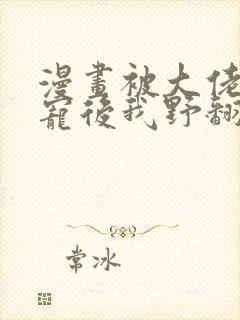 漫畫被大佬
寵後我野翻
常冰